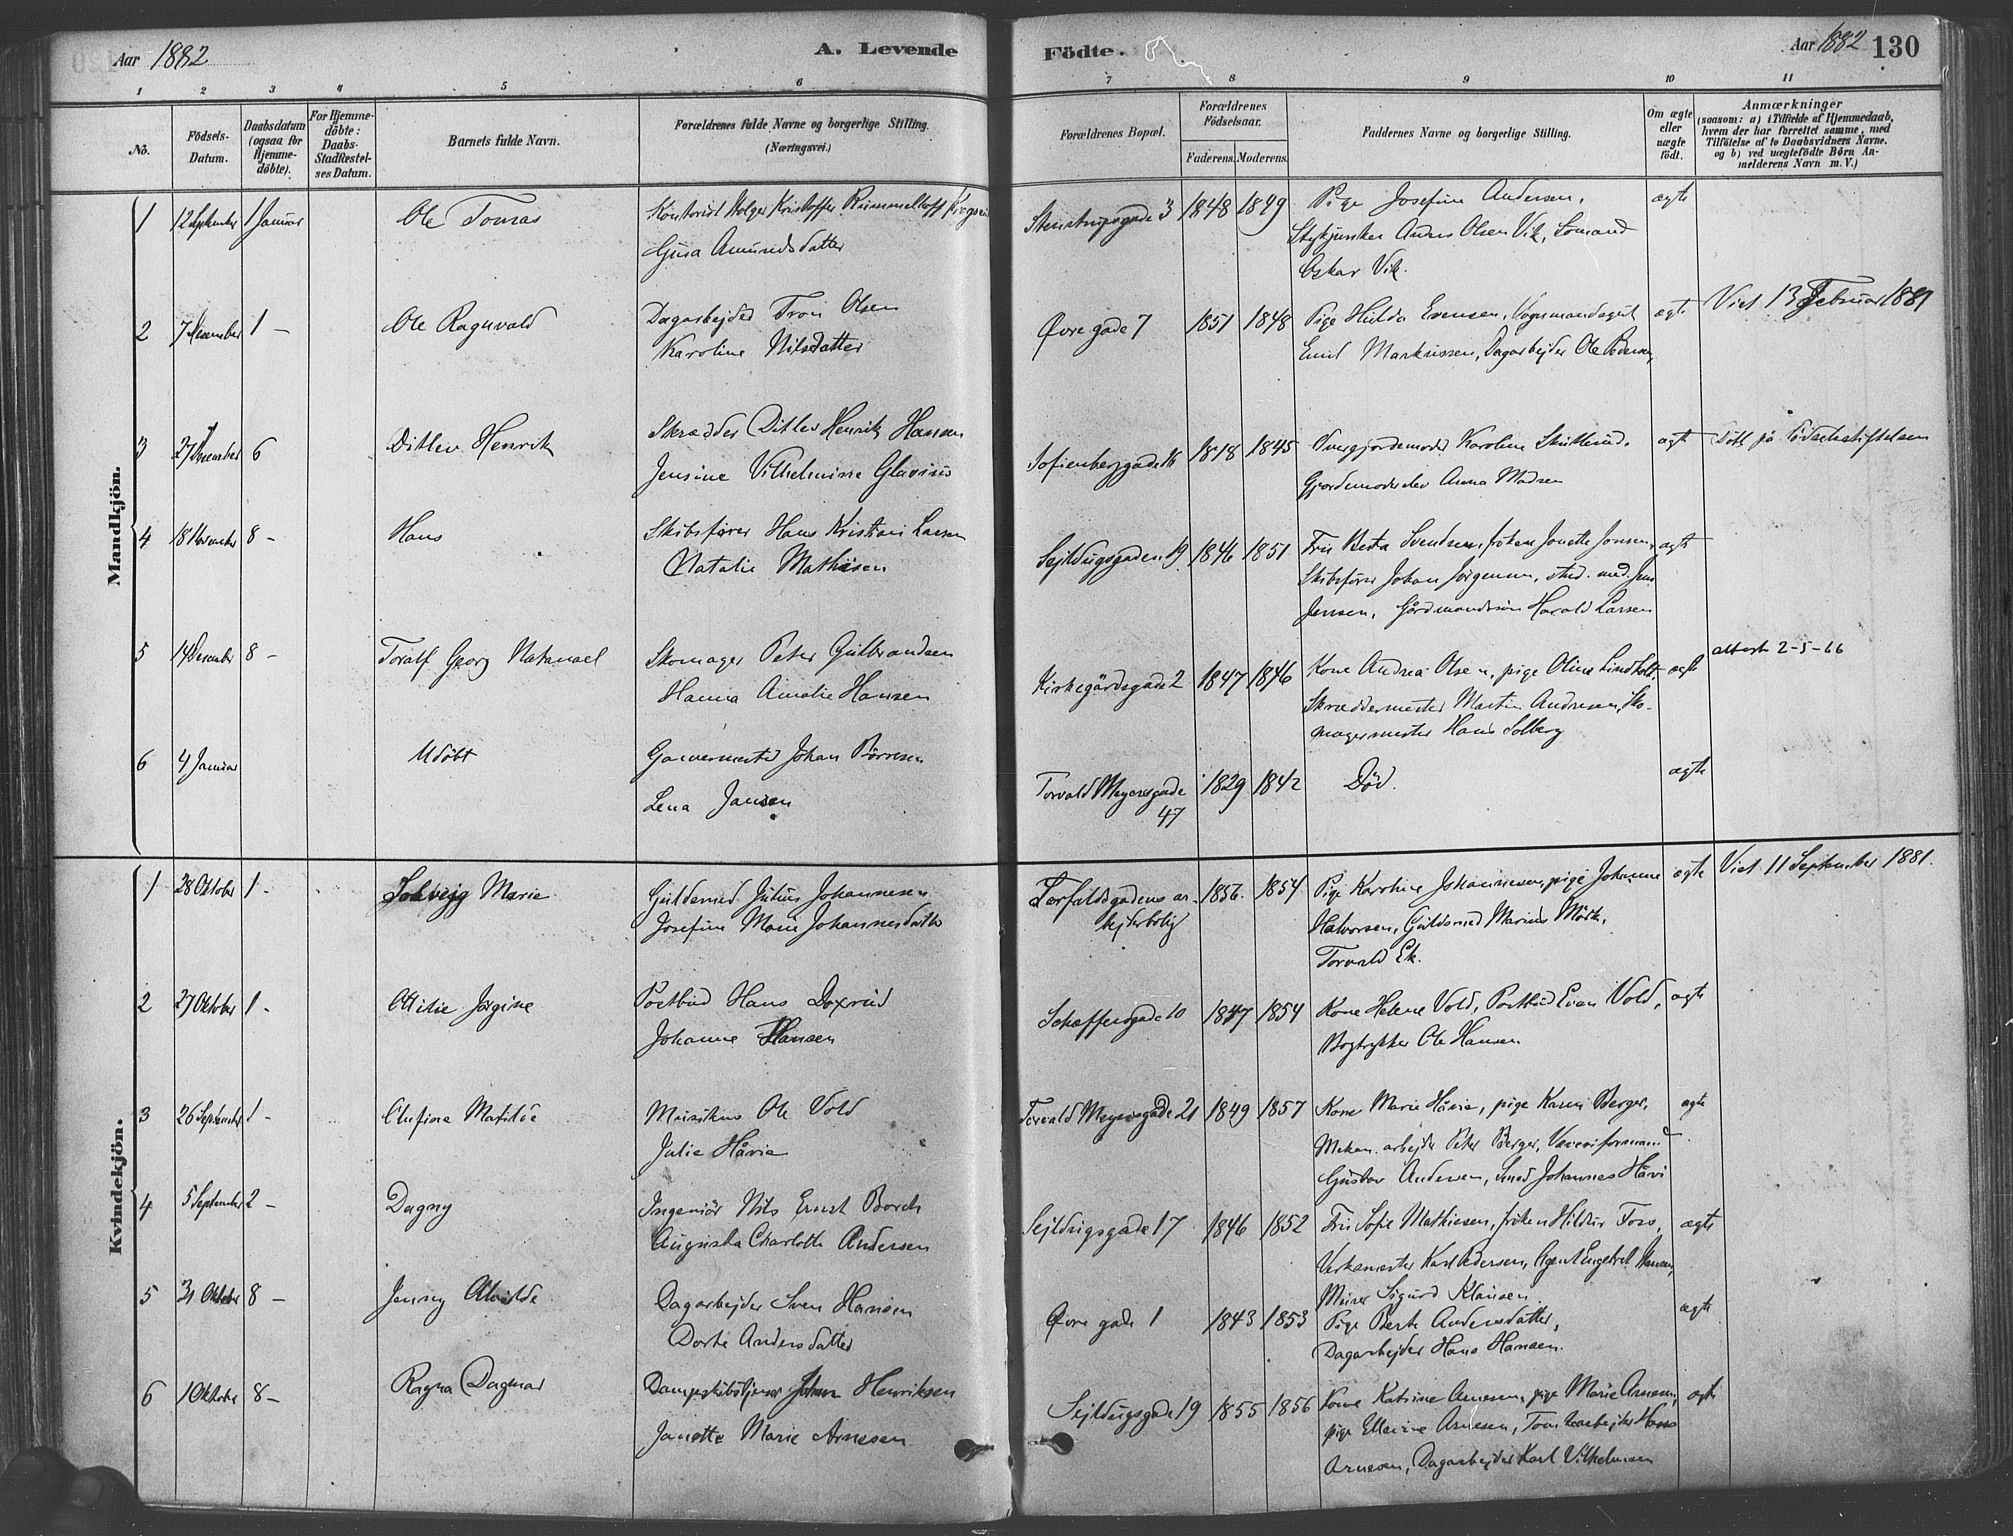 Aar 1882 A. Levende Födte. Aar 1882 130
1 2 3 4 5 6 7 8 9 10 11
No.
Födsels-Datum.
Daabsdatum (ogsaa for Hjemme-döbte).
For Hjemme-döbte: Daabs-Stadfæstel-ses Datum.
Barnets fulde Navn.
Forældrenes fulde Navne og borgerlige Stilling.
(Næringsvei.)
Forældrenes Bopæl.
Forældrenes Födselsaar.
Faderens. Moderens.
Faddernes Navne og borgerlige Stilling.
Om ægte eller uægte födt.
Anmærkninger
(saasom: a) i Tilfælde af Hjemmedaab,
hvem der har forrettet samme, med
Tilföielse af to Daabsvidners Navne.
og b) ved uægtefödte Börn An-
melderens Navn m. V.)
Mandkjön.
1 12 September 1 Januar Ole Tomas Kontorist Holger Kristoffer Rummelhoff Stenstrupsgade 3 1848 1849 Pige Josefine Andersen, ægte
Gusa Amundsdatter Anders Olsen Vik, Sömand
Oskar Vik.
2 7 Desember 1 – Ole Ragnvald Dagarbejder Tron Olsen Øvre gade 7 1851 1848 Pige Hulda Evensen, ægte Viet 13 Februar 1881
Karoline Nilsdatter Emil Markussen, Dagarbejder Ole Pedersen,
3 27 Desember 6 Ditlev Henrik Skrædder Ditlev Henrik Hansen Sofienberggade 16 1848 1845 Overgjordemoder Karoline ægte Födt på Födselsstiftelsen
Jensine Vilhelmine Glavius Gjordemoderelev Anna Madsen
4 18 November 8 – Hans Skibsfører Hans Kristian Larsen Sejldugsgaden 19 1846 1851 Fru Berta Svendsen, frøken Jonette Jonsen, ægte
Natalie Mathisen Skibsfører Johan Jørgensen, stud. med. Jens
Jensen, Gårdmandssøn Harald Larsen
5 14 Desember 8 – Toralf Georg Natanael Skomager Peter Gulbrandsen Kirkegårdsgade 2 1847 1846 Kone Andrea Olsen, pige Oline Lindholt, ægte attest 2-5-66
Hanna Amalie Hansen Skræddermester Martin Andresen, Sko-
magermester Hans Solberg
6 4 Januar Udøbt Garvermester Johan Börresen Torvald Meyersgade 47 1829 1842 Död. ægte
Lena Jansen
Kvindekjön.
1 28 Oktober 1 – Solveig Marie Guldsmed Julius Johannesen Torfaldsgadens ar-bejderbolig 1856. 1854 Pige Karoline Johannesen, pige Johanne ægte Viet 11 September 1881.
Josefine Marie Johannesdatter Halvorsen, Guldsmed Marius Mörk,
Torvald Ek.
2 27 Oktober 1 – Ottilie Jørgine Postbud Hans Doxrud Schæffersgade 10 1847 1854 Kone Helene Vold, Postbud Evan Vold, ægte
Johanne Hansen Bogtrykker Ole Hansen
3 26 September 1 – Olufine Matilde Musikus Ole Vold Torvald Meyersgade 21 1849 1857 Kone Marie Håvie, pige Karen Berger, ægte
Julie Håvie Mekan. arbejder Peter Berger, Væveriformand
Gustav Andersen, Smed Johannes Håvi
4 5 September 2 – Dagny Ingeniör Nils Ernst Borch Sejldugsgade 17 1846 1852 Fru Sofie Mathiesen, frøken Hildur Foss, ægte
Augusta Charlotte Andersen Verksmester Karl Pedersen, Agent Engebret Hansen,
Murer Sigurd Klausen.
5 31 Oktober 8 – Jenny Alvilde Dagarbejder Sven Hansen Øvre gade 1 1843 1853 Pige Berte Andersdatter, ægte
Dorte Andersdatter Dagarbejder Hans Hansen.
6 1 Oktober 8 – Ragna Dagmar Dampskibstjener Johan Henriksen Sejldugsgade 19 1855 1856 Kone Katrine Arnesen, pige Marie Arnesen, ægte
Janette Marie Arnesen pige Arnesen, Tomtearbejder Hans
Arnesen, Dagarbejder Karl Vilhelmsen